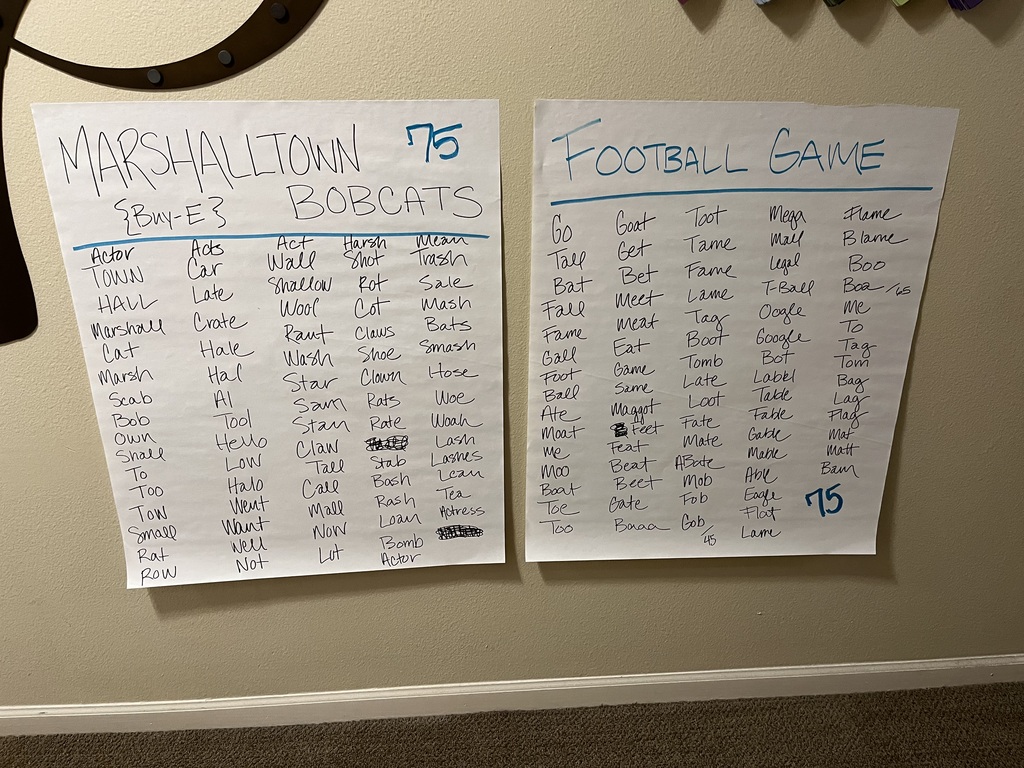 MARSHALLTOWN 75
{Buy-E} BOBCATS
Actor Acts Act Harsh Mean
TOWN Car Wall Shot Trash
HALL Late Shallow Rot Sale
Marshall Crate Wool Cot Mash
Cat Hale Raut Claws Bats
Marsh Hal Wash Shoe Smash
Scab Al Star Clown Hose
Bob Tool Sam Rats Woe
Own Hello Stan Rate Woah
Shall Low Claw Lash
To Halo Tall Stab Lashes
Too Went Call Bash Lean
Tow Want Mall Rash Tea
Small Well Now Loan Actress
Rat Not Lot Bomb
Row Actor
FOOTBALL GAME
Go Goat Toot Mega Flame
Tall Get Tame Mall Blame
Bat Bet Fame Legal Boo
Fall Meet Lame T-Ball Boa /65
Fame Meat Tag Oogle Me
Gall Eat Boot Google To
Foot Game Tomb Bot Tag
Ball Same Late Label Tom
Ate Maggot Loot Table Bag
Moat Feet Fate Fable Lag
Me Feat Mate Gable Flag
Moo Beat ABate Mable Mat
Boat Beet Mob Able Matt
Toe Gate Fob Eagle Bam
Too Baaa Gob Flat
/45 Lame
75